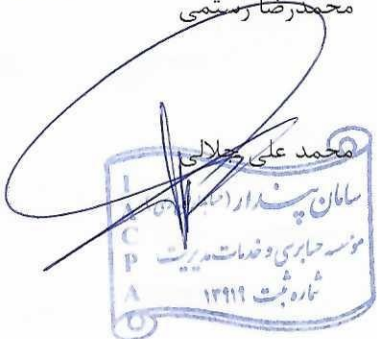 محمدرضا رستمی
محمد علی جلالی
IACPA
سامان پندار (
مؤسسه حسابرسی و خدمات مدیریت
شماره ثبت ۱۳۹۱۹